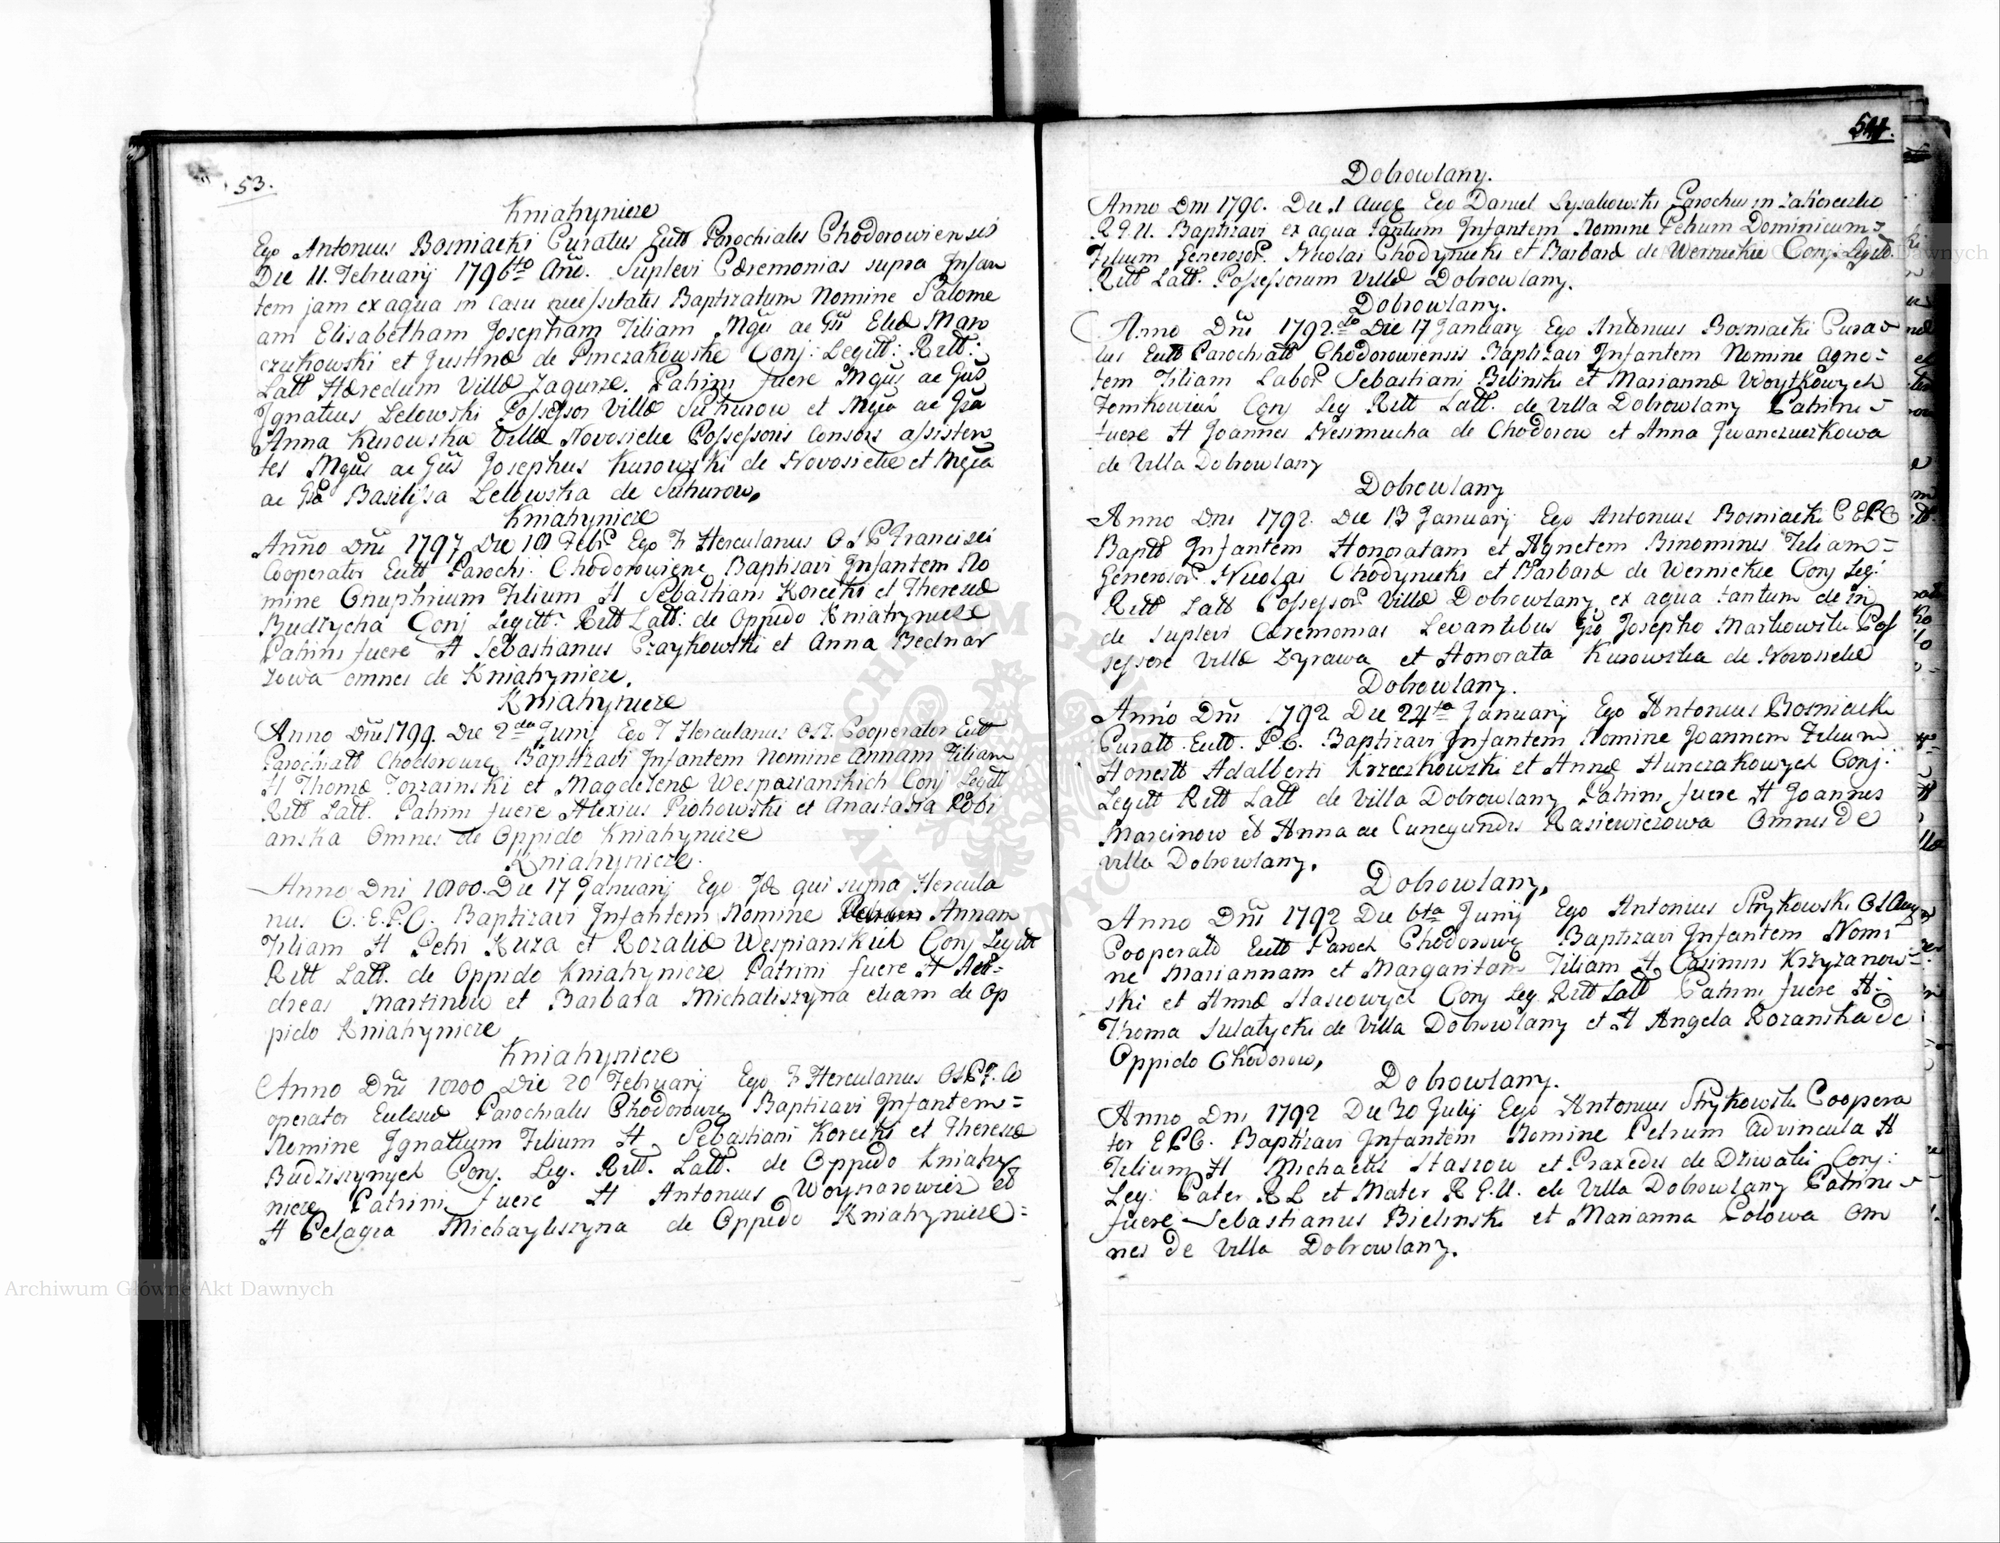 53.
Kniahynicze
Ego Antonius Bosniacki Curatus Eccłł Parochiales Chodorowiensis
Die 11. February 1796to Anō. Suplevi Cæremonias supra Infan
tem jam ex aqua in casu necessitatis Baptizatum Nomine Salome
am Elisabetham Josepham Filiam Mgci ac Gsi Eliæ Man
czukowski et Justinæ de Pinczakowskie Conj: Legitt: Ritt:
Latt Hæredum Villæ Zagurze. Patrini fuere Mgcus ac Gsus
Ignatius Lelowski Possessor Villæ Suhurow et Mgca ac Gsa
Anna Kurowska Villæ Novosielce Possessoris Consors assisten
tes Mgcus ac Gsus Josephus Kurowski de Novosielce et Mgca
ac Gsa Basilissa Lelowska de Suhurow,
Kniahynicze
Anno Dni 1797 Die Febr Ego F Herculanus O S P Francisci
Cooperator Eccłł Parochi. Chodorowiene Baptisavi Infantem No
mine Onuphrium Filium H Sebastiani Korecki et Theresæ
Budzycha Conj Legitt: Ritt Latt: de Oppido Kniahynicze
Patrini fuere H Sebastianus Czaykowski et Anna Bednar
zowa omnes de Kniahynicze.
Kniahynicze
Anno Dni 1799. Die 2da Junÿ Ego F Herculanus Cooperator Eccłł
Parochiałł Chodorowię Baptisavi Infantem Nomine Annam Filiam
H Thomæ Torzainski et Magdelenæ Wesparianskich Conj Legitt
Ritt Latt. Patrini fuere Alexius Piohowski et Anastasia Robi
anska Omnes de Oppido Kniahynicze
Kniahynicze.
Anno Dni 1800. Die 17 Januarÿ Ego Id qui supra Hercula
nus C. E. P. C. Baptisavi Infantem Nomine Annam
Filiam H Petri Kuza et Rozaliæ Wespianskich Conj Legitt
Ritt Latt. de Oppido Kniahynicze Patrini fuere H And=
dreas Martinow et Barbara Michaliszyna etiam de Op
pido Kniahynicze
Kniahynicze
Anno Dni 1800 Die 20 Februarÿ Ego F Herculanus Co
operator Ecclesiæ Parochiales Chodorowię Baptisavi Infantem=
Nomine Ignatium Filium H. Sebastiani Korecki et Theresiæ
Budziszynych Conj. Leg. Ritt. Latt. de Oppido Kniahy
nicze Patrini fuere H Antonius Woynarowicz et
H Pelagia Michayliszyna de Oppido Kniahynicze=
54.
Dobrowlany.
Anno Dni 1790. Die 1 Aug Ego Daniel Lysakowski Parochus in
R. G. U. Baptisavi ex aqua tantum Infantem Nomine Petrum Dominicum=
Filium Generosor. Nicolai Chodynicki et Barbaræ de Wernickie Conj. Legitt.
Ritt Latt. Possessorum Villæ Dobrowlany.
Dobrowlany.
Anno Dni 1792.do Die 17 Januarÿ Ego Antonius Bosniacki Cura=
tus Eccłł Parochiałł Chodorowiensis Baptisavi Infantem Nomine Agne=
tem Filiam Labor Sebastiani Bilinski et Mariannæ Woytkowych
Tomkowiak Conj Leg Ritt Latt. de Villa Dobrowlany Patrini=
fuere H Joannes Niesimucha de Chodorow et Anna Jwanczuczkowa
de Villa Dobrowlany
Dobrowlany
Anno Dni 1792. Die 13 Januarÿ Ego Antonius Bosniacki C E P C
Baptt Infantem Honoratam et Agnetem Binominis Filiam=
Generosor. Nicolai Chodynicki et Barbaræ de Wernickie Conj Leg:
Ritt Latt Possessor Villæ Dobrowlany ex aqua tantum de in
de suplevi Cæremonias Levantibus Gso Josepho Markowski Pos
sessore Villæ Zyrawa et Honorata Kurowska de Novosielce
Dobrowlany.
Anno Dni 1792 Die 24ta Januarÿ Ego Antonius Bosniacki
Curatt. Eccłł. P. C. Baptisavi Infantem Nomine Joannem Filium
Honestt Adalberti Krzeczkowski et Annæ Hunczakowych Conj.
Legitt Ritt Latt de Villa Dobrowlany Patrini fuere H Joannes
Marcinow et Anna ac Cunegundis Rasiewiczowa Omnes De
villa Dobrowlany.
Dobrowlany,
Anno Dni 1792 Die 6ta Junÿ Ego Antonius Strykowski
Cooperato Eccłł Paroch Chodorowię Baptisavi Infantem Nomi
ne Mariannam et Margaritam Filiam H Casimiri Krzyzanow=
ski et Annæ Stasiowych Conj Leg. Ritt Latt Patrini fuere H.
Thoma Sulatycki de Villa Dobrowlany et H Angela Rozanska De
Oppido Chodorow,
Dobrowlany.
Anno Dni 1792 Die 30 Julÿ Ego Antonius Strykowski Coopera
tor E P C. Baptisavi Infantem Nomine Petrum Advincula H
Filium H Michaelis Staszow et Praxedis de Dziwalis Conj:
Leg: Pater R L et Mater R G. U. de Villa Dobrowlany Patrini=
fuere Sebastianus Bielinski et Marianna Polowa Om
nes De Villa Dobrowlany.
Archiwum Główne Akt Dawnych